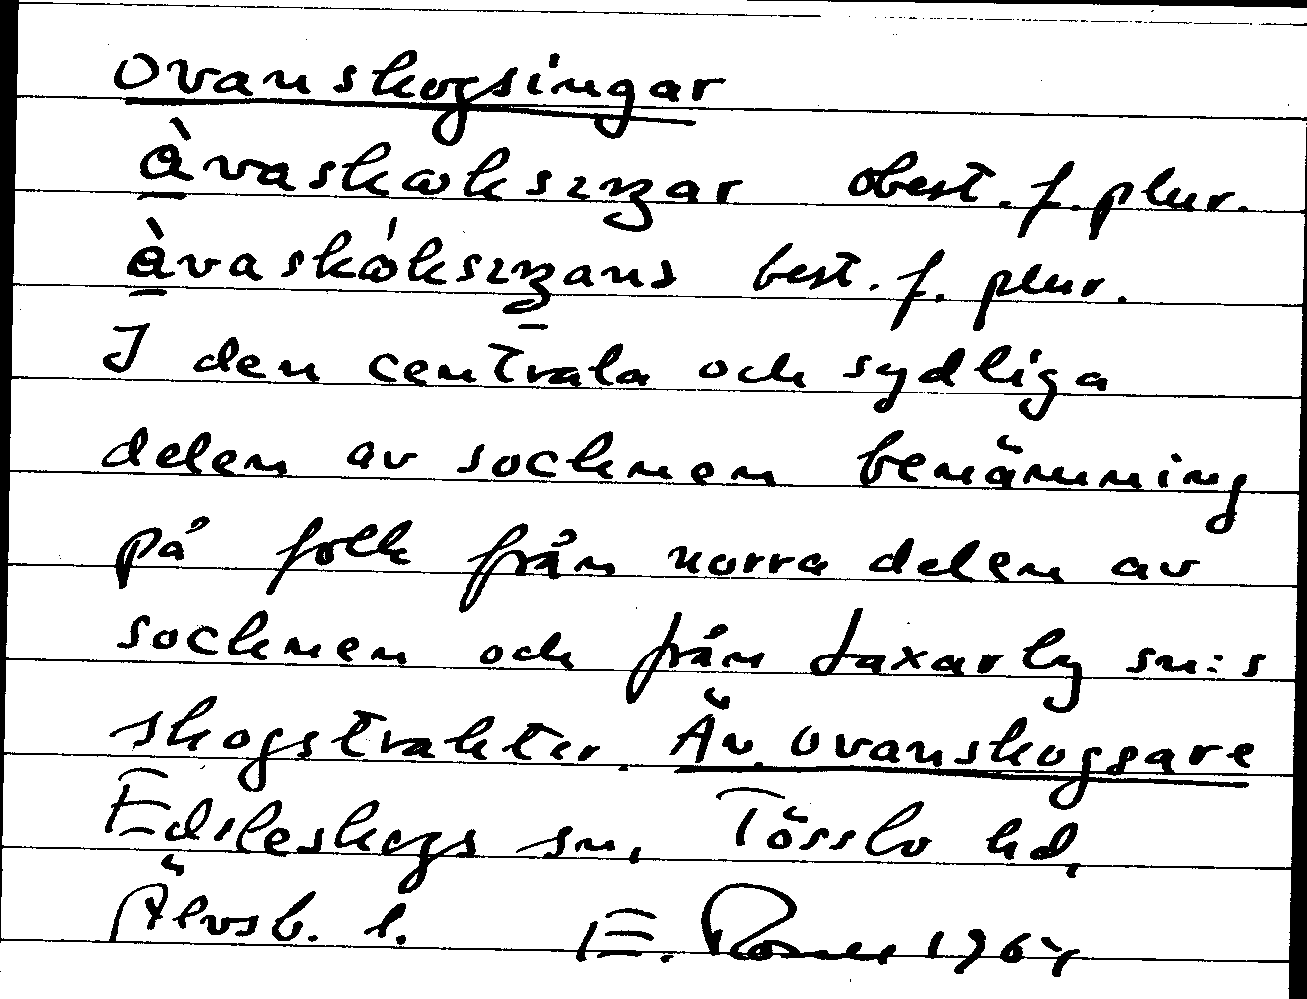 Ovanskogsingar
àvaskωksıŋar obest. f. plur.
àvaskώksıŋans best. f. plur.
I den centrala och sydliga
delen av socknen benämning
på folk från norra delen av
socknen och från Laxarby sn:s
skogstrakter. Äv. ovanskogsare
Edsleskogs sn, Tössbo hd,
Älvsb. l. E. 1964